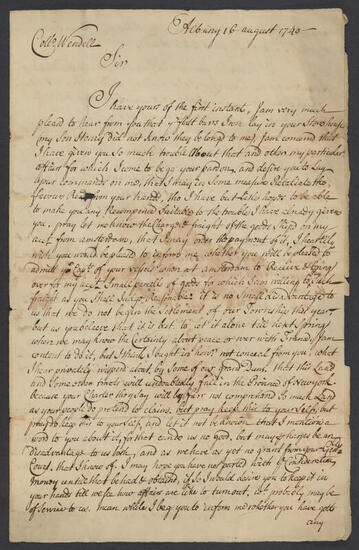 Albany 16 august 1740
Coll.o Wendell
Sir
I have yours of the first instant, I am very much
pleasd to hear from you that y.e flatt barrs Iron lay in your Storehouse
my Son Henry did not know they belong'd to me, I am concernd that
I have given you So much trouble about that and other my particular
affairs for which I come to begg your pardon, and desire you to Lay
your commands on me, that I may in Some measure Retaliate the
favours from your hands, tho I have but Little hopes to be able
to make you any Recompence Suitable to the trouble I have already given
you, pray let me know the Charge & freight of the goods Ship'd on my
acc.t from amsterdam, that I may order the payment of it, I heartily
wish you would be pleasd to inform me, whether you will be pleased to
admitt y.e Cap.t of your vessel when at amsterdam to Receive & bring
over for my acc.t Small parcells of goods for which I am willing to pay Such
freight as you Shall Judge Reasonable: it is no Small disadvantage to
us that we do not begin the Settlement of our Township this year,
but as you believe that it is best to let it alone till next Spring
when we may know the Certainty about peace or war with France, I am
content to do it, but I think I ought in honor not conceal from you, what
I hear privately whisperd about, by Some of our grandees, that this Land
and Some other tracts will undoubtedly fall in the Province of New york
because your Charter they Say will by far not comprehend So much Land
as your people do pretend to claim, but pray keep this to your Self,
pray do keep this to your self, and let it not be known that I mention a
word to you about it, for that can do us no good, but may perhaps be a
disadvantage to us both, and as we have as yet no grant from your Gen.ll
Court, that I know of, I may hope you have not parted with y.e Consideration
money until that be had & obtaind, if so I would desire you to keep it in
your hands till we See how affairs are like to turn out, w.ch probably may be
of Service to us. mean while I beg you to inform me whether you have gott
any